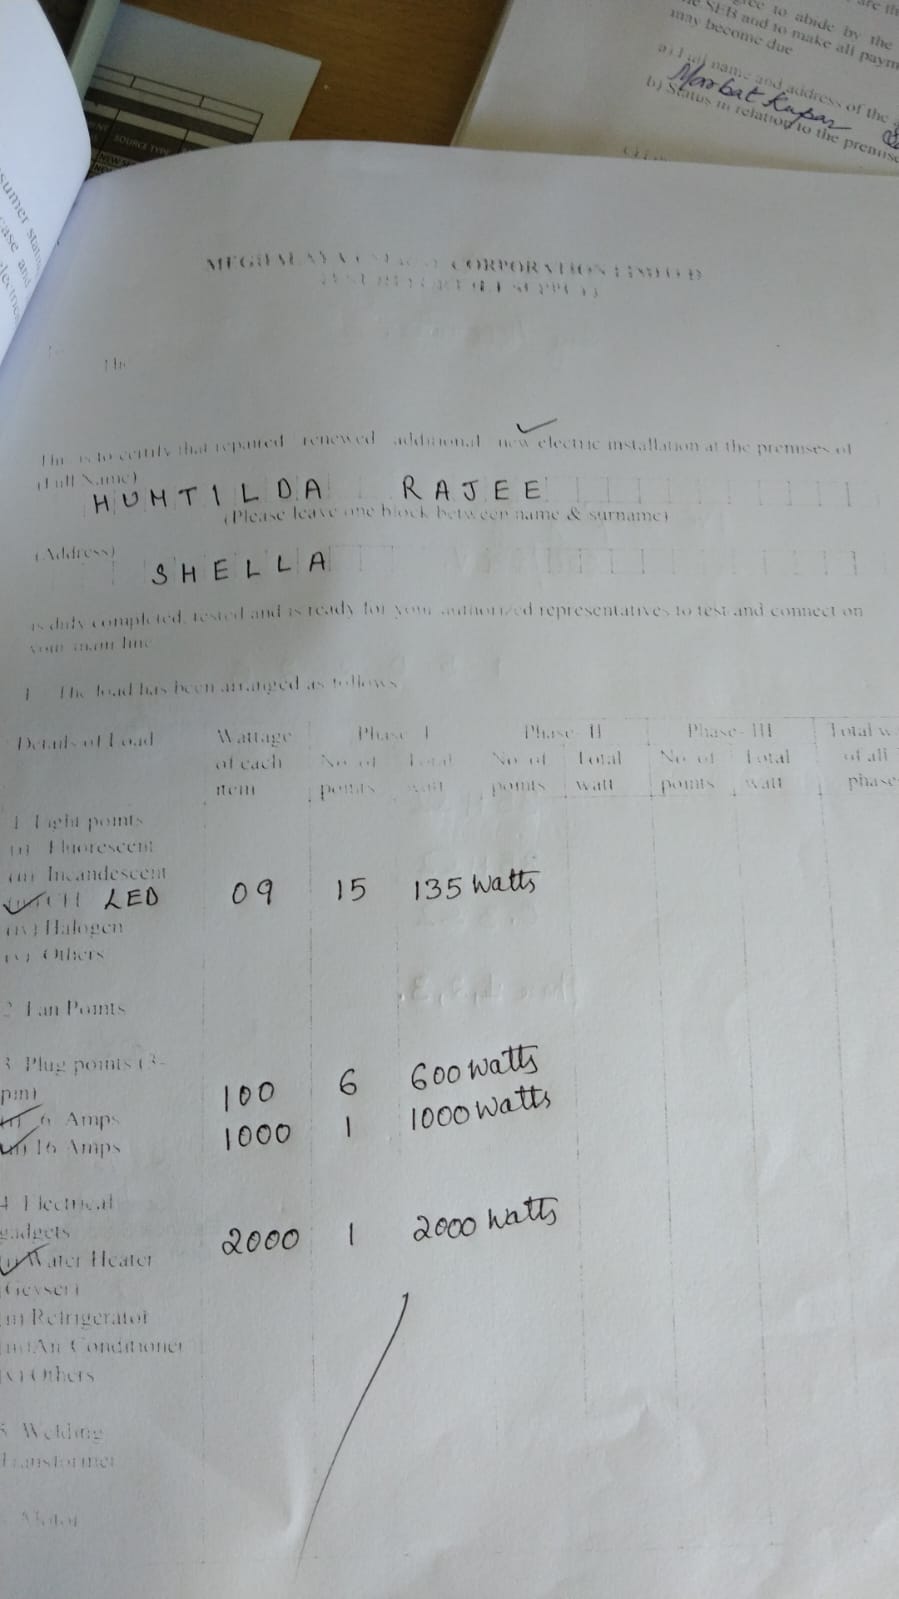 gree to abide by the
SEB and to make all paym
may become due
a) Full name and address of the
Marbat Kupar
b) Status in relation to the premise
SOURCE TYPE
sumer
ase and
MEGHALAYA CORPORATION LIMITED
TEST REPORT
The
This is to certify that repaired renewed additional new electric installation at the premises of
(Full Name)
HUMTILDA RAJEE
(Please leave one block between name & surname)
(Address)
SHELLA
is duly completed, tested and is ready for your authorized representatives to test and connect on
your main line
1 The load has been arranged as follows
Details of Load Wattage of each item Phase I Phase II Phase- III Total w of all phase
No of points Total watt No of points Total watt No of points Total watt
1 Light points
(i) Fluorescent
(ii) Incandescent
LED 09 15 135 Watts
(iv) Halogen
(v) Others
2 Fan Points
3 Plug points (3-
pin) 100 6 600 watts
(i) 6 Amps 1000 1 1000 watts
(ii) 16 Amps
4 Electrical
gadgets 2000 1 2000 watts
(i) Water Heater
(Geyser)
(ii) Refrigerator
(iii) Air Conditioner
(v) Others
5 Welding
Transformer
Motor